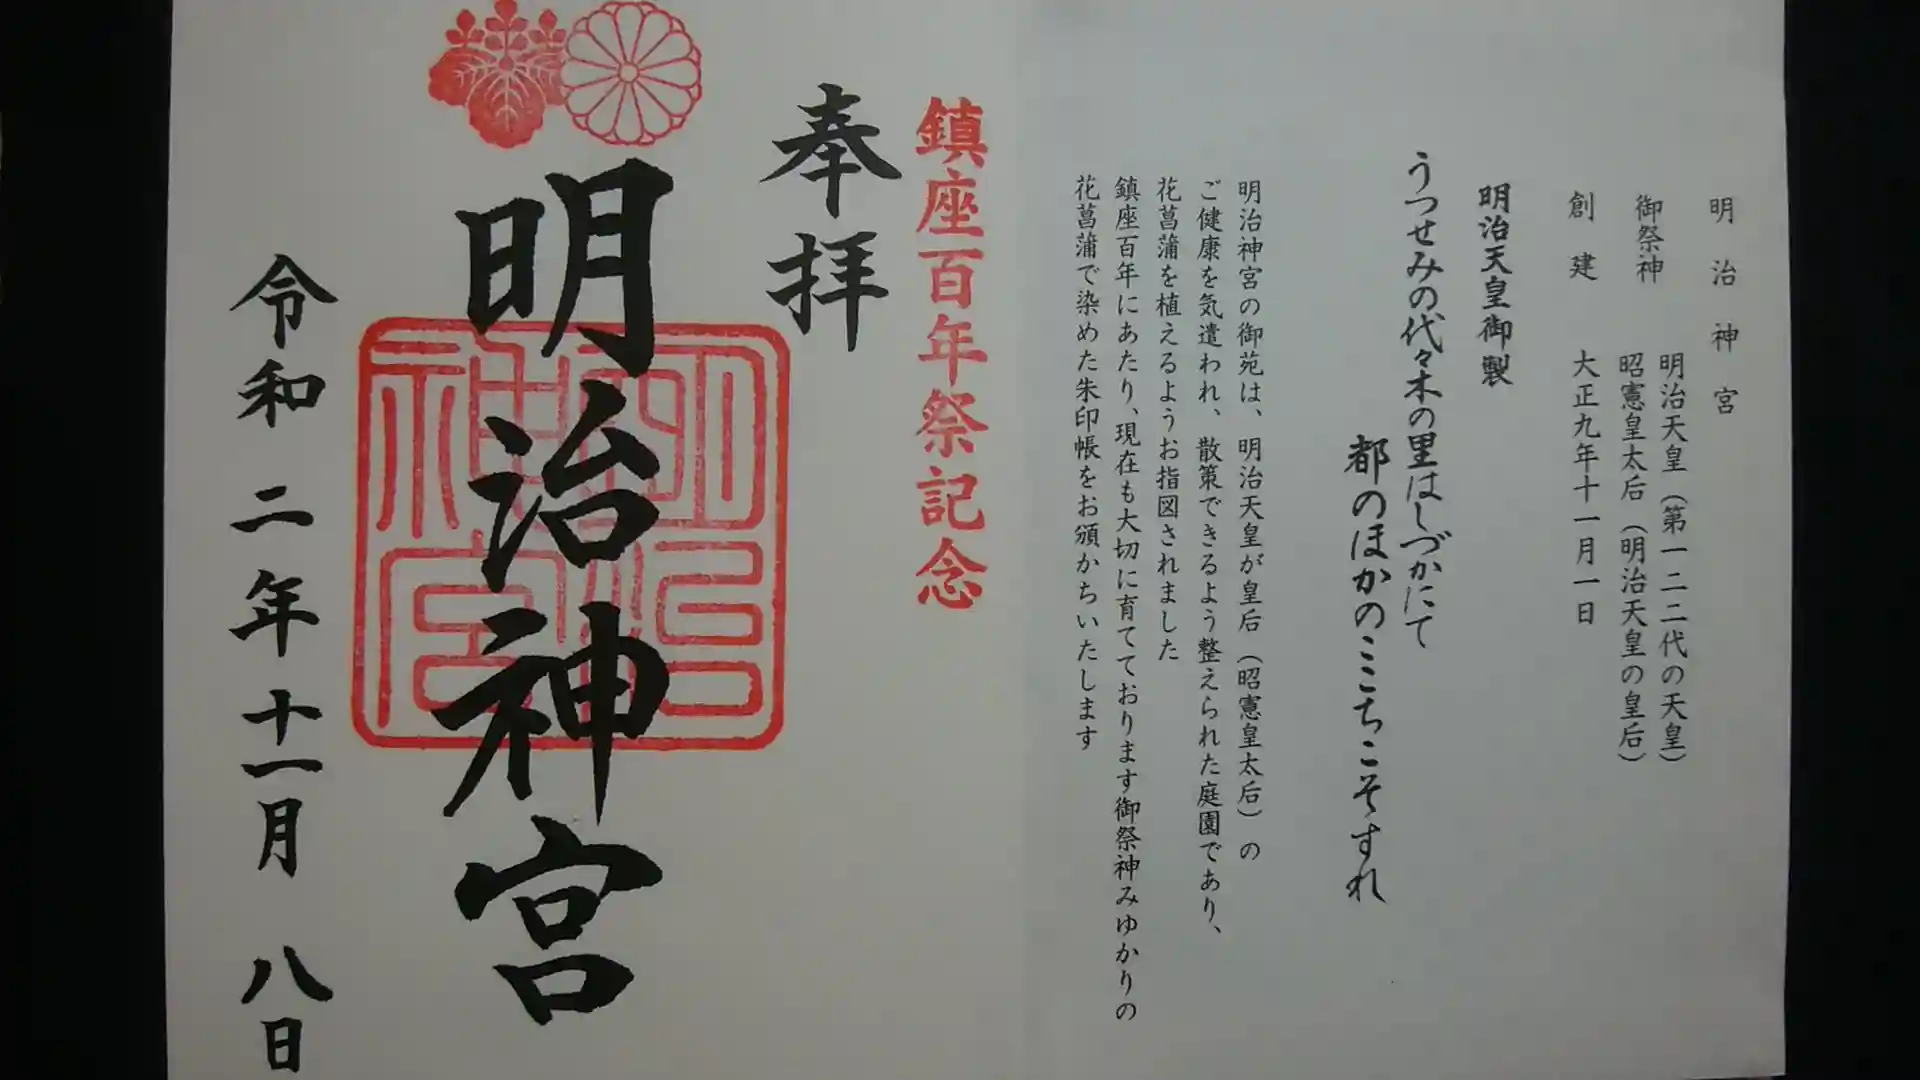 明治神宮
御祭神
明治天皇（第一二二代の天皇）
昭憲皇太后（明治天皇の皇后）
創建 大正九年十一月一日
明治天皇御製
うつせみの代々木の里はしづかにて
都のほかのこゝちこそすれ
明治神宮の御苑は、明治天皇が皇后（昭憲皇太后）の
ご健康を気遣われ、散策できるよう整えられた庭園であり、
花菖蒲を植えるようお指図されました
鎮座百年にあたり、現在も大切に育てております御祭神みゆかりの
花菖蒲で染めた朱印帳をお頒かちいたします
鎮座百年祭記念
奉拝
明治神宮
明治神宮
令和二年十一月八日